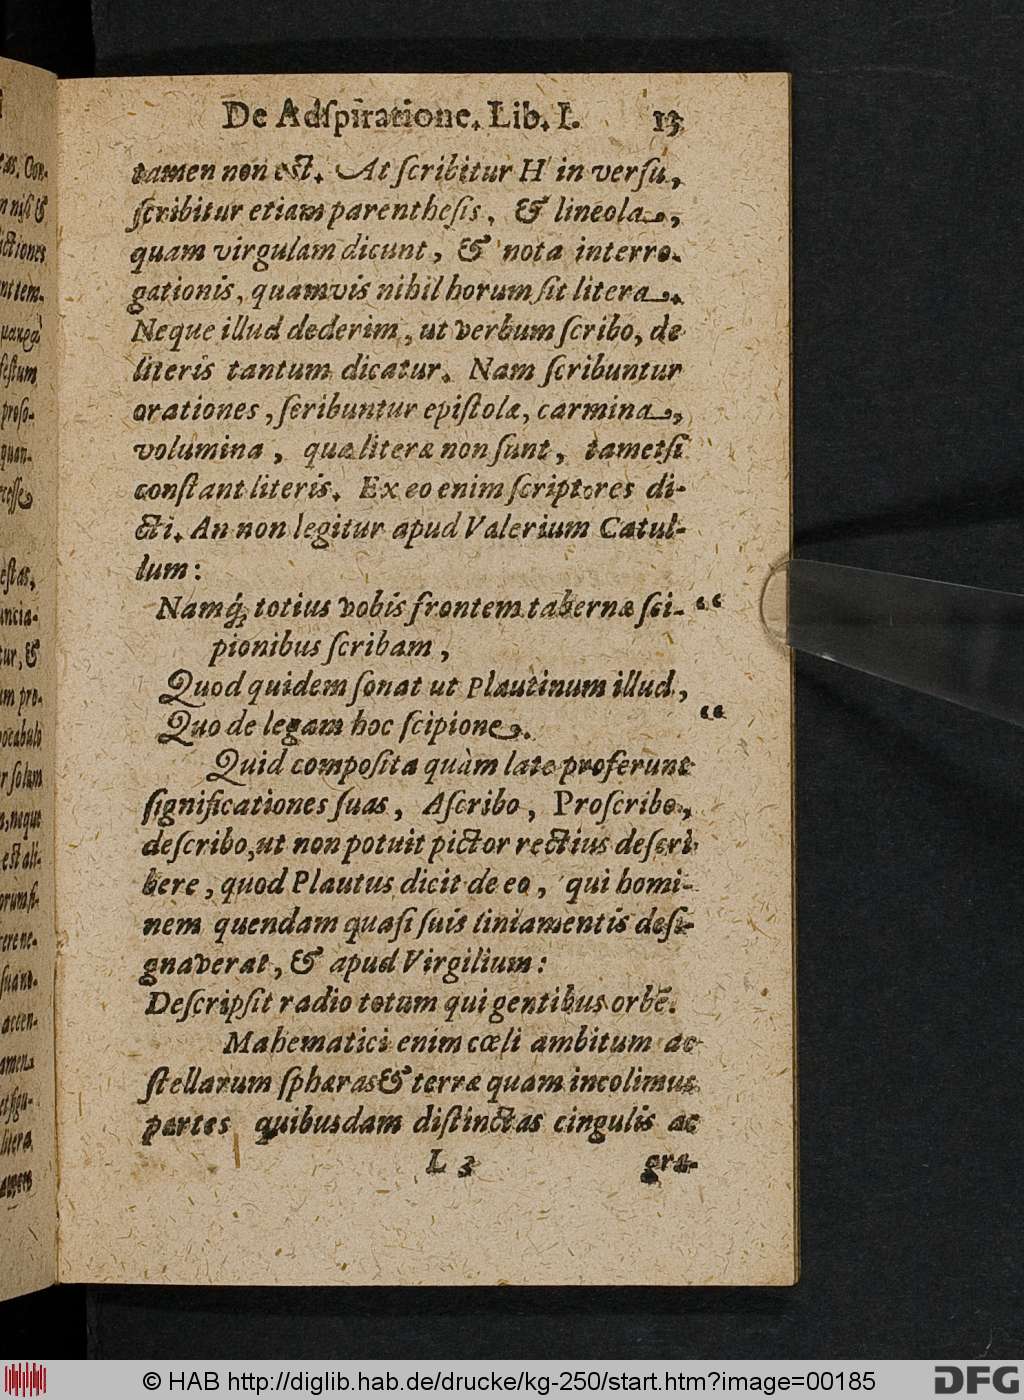 De Adſpiratione. Lib. I. 13
tamen non est. At ſcribitur H in verſu,
ſcribitur etiam parentheſis, & lineola,
quam virgulam dicunt, & nota interro-
gationis, quamvis nihil horum ſit litera.
Neque illud dederim, ut verbum ſcribo, de
literis tantum dicatur. Nam ſcribuntur
orationes, ſcribuntur epiſtolæ, carmina,
volumina, quæ literæ non ſunt, tametſi
conſtant literis. Ex eo enim ſcriptores di-
cti. An non legitur apud Valerium Catul-
lum:
Namq́; totius vobis frontem tabernæ ſci- “
pionibus ſcribam,
Quod quidem ſonat ut Plautinum illud,
Quo de legam hoc ſcipione. “
Quid compoſita quàm late proferunt
ſignificationes ſuas, Aſcribo, Proſcribo,
deſcribo, ut non potuit pictor rectius deſcri-
bere, quod Plautus dicit de eo, qui homi-
nem quendam quaſi ſuis liniamentis deſi-
gnaverat, & apud Virgilium:
Deſcripſit radio totum qui gentibus orbē.
Mahematici enim cœli ambitum ac
ſtellarum ſphæras & terræ quam incolimus
partes quibusdam diſtinctas cingulis ac
L 3 gra-
© HAB http://diglib.hab.de/drucke/kg-250/start.htm?image=00185
DFG